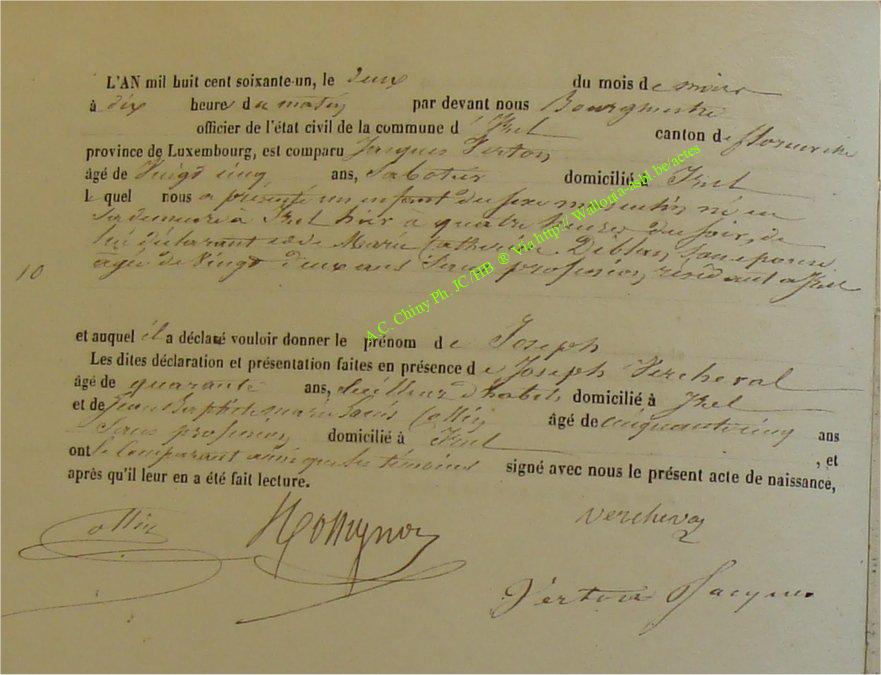 L'AN mil huit cent soixante-un, le deux du mois de mars
à dix heures du matin par devant nous Bourgmestre
officier de l'état civil de la commune d'Izel canton de florenville
province de Luxembourg, est comparu Jacques Verton
âgé de Vingt cinq ans, Sabotier domicilié à Izel
lequel nous a présenté un enfant du sexe masculin né en
sa demeure à Izel hier à quatre heures du soir, de
lui déclarant et de Marie Catherine Diblan son épouse
agée de Vingt deux ans Sans profession, résidant à Izel
10
et auquel il a déclaré vouloir donner le prénom de Joseph
Les dites déclaration et présentation faites en présence de Joseph Vercheval
âgé de quarante ans, tailleur d'habits domicilié à Izel
et de Jean Baptiste marie Collin âgé de cinquante cinq ans
Sans profession domicilié à Izel , et
ont le Comparant ainsi que les témoins signé avec nous le présent acte de naissance,
après qu'il leur en a été fait lecture.
Collin
Vercheval
Verton Jacques
A.C. Chiny Ph. JC/HB ® Via http:// Wallonia-asbl.be/actes